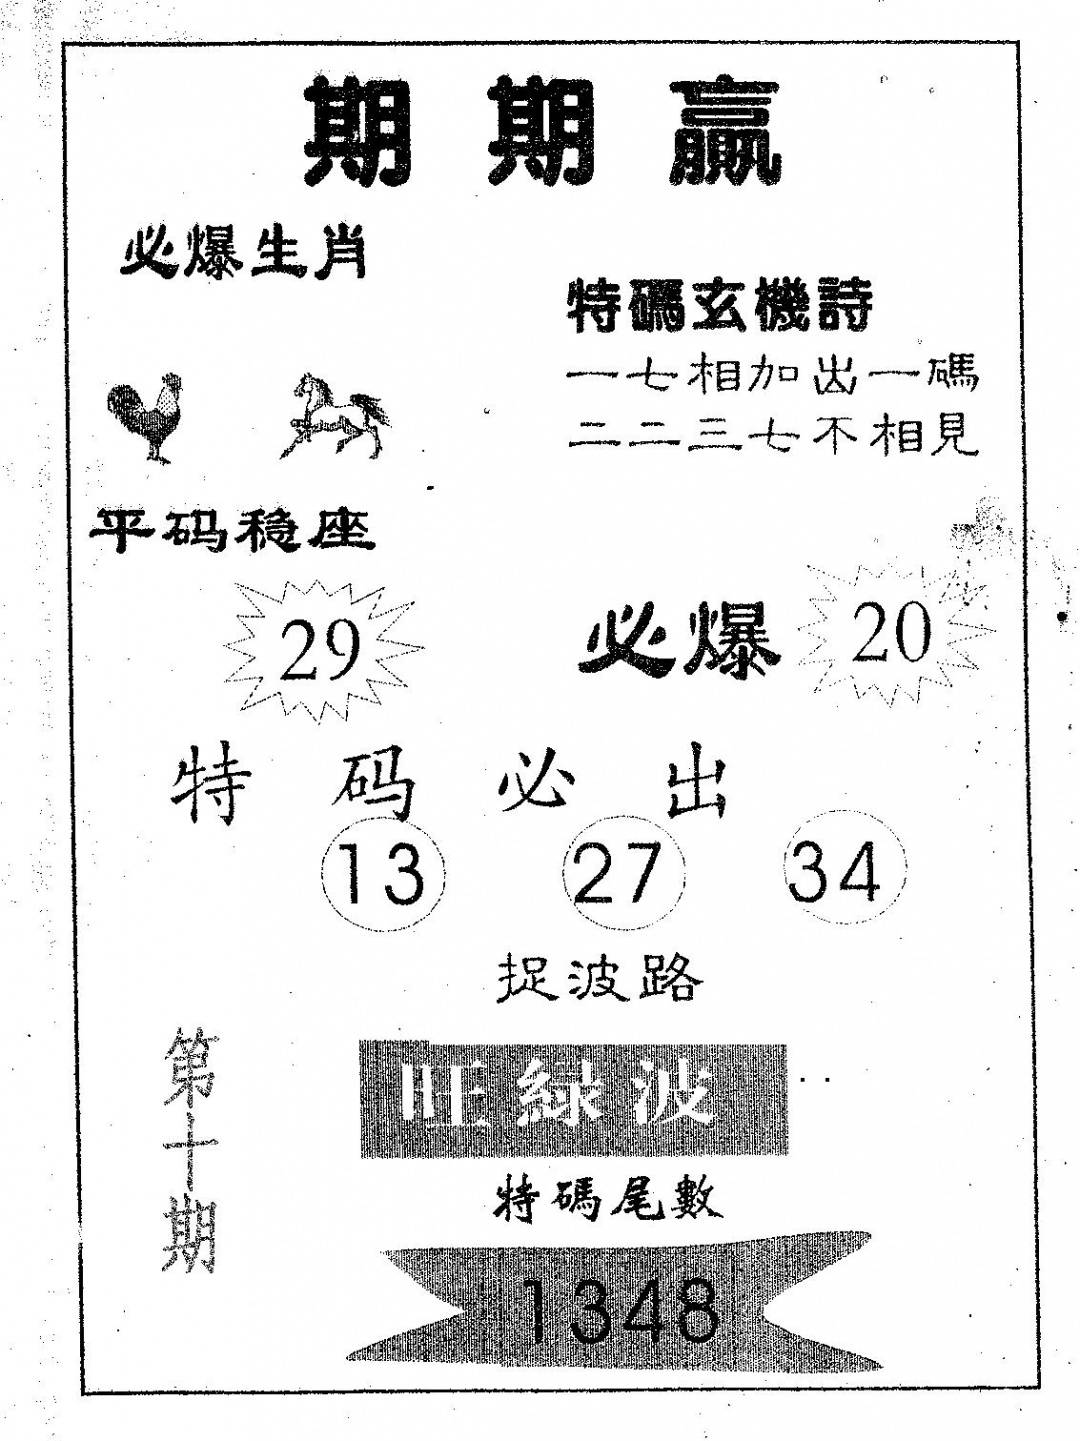 期期贏
必爆生肖
特碼玄機詩
一七相加出一碼
二二三七不相見
平码稳座
29
必爆 20
特码必出
13 27 34
捉波路
旺綠波
第十期
特碼尾數
1348